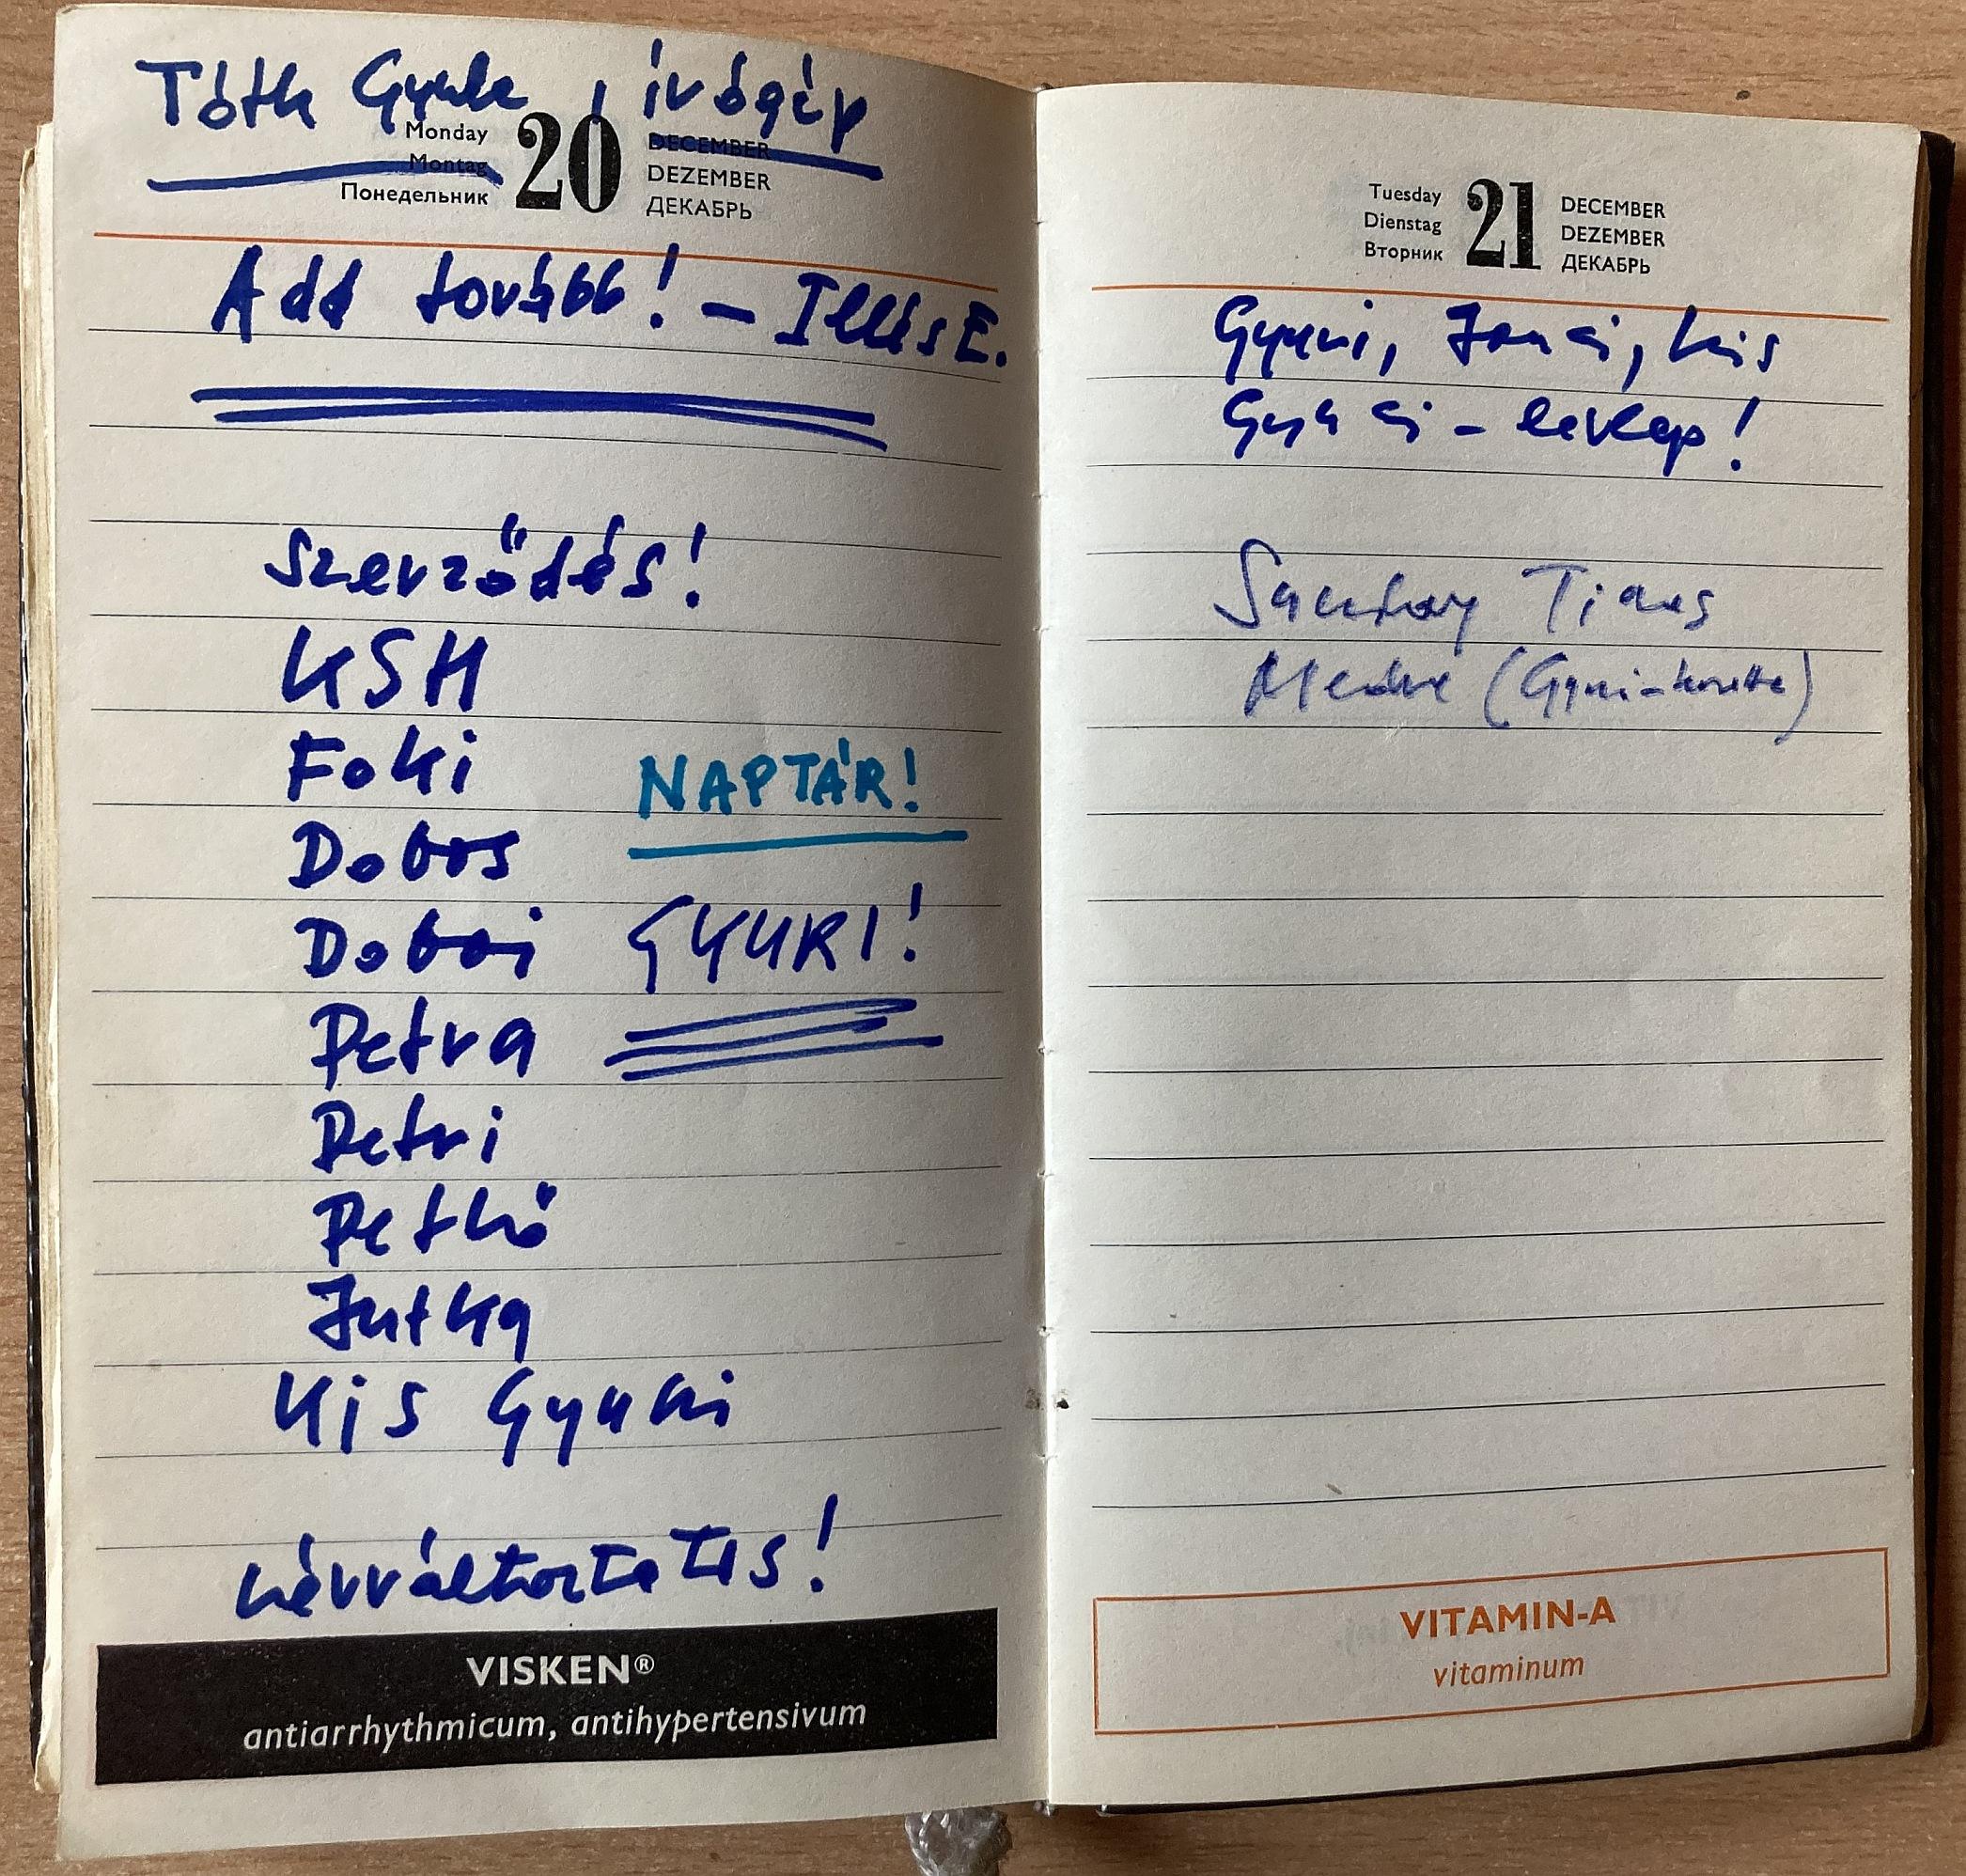 Tóth Gyula, írógép
Monday
Montag
Понедельник
20
DECEMBER
DEZEMBER
ДЕКАБРЬ
Add tovább! – Illés E.
Szerződés!
KSH
Foki
Dobos
NAPTÁR!
Dobai
GYURI!
Petra
Petri
Pethő
Jutka
Kis Gyuri
névváltoztatás!
VISKEN®
antiarrhythmicum, antihypertensivum
Tuesday
Dienstag
Вторник
21
DECEMBER
DEZEMBER
ДЕКАБРЬ
Gyuri, Jancsi, kis
Gyuri – levlap!
Sunday Times
(Gyuri-
VITAMIN-A
vitaminum